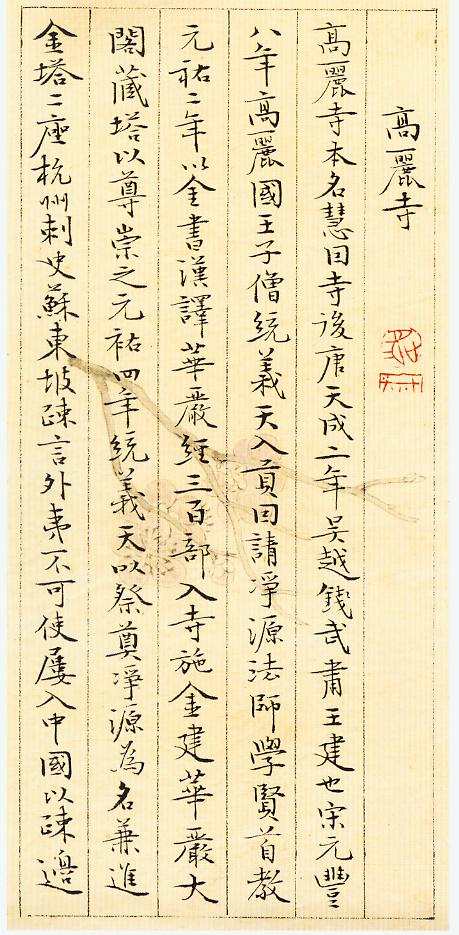 高麗寺
高麗寺本名慧囙寺後唐天成二年吳越錢武肅王建也宋元豐
八年高麗國王子僧統義天入貢囙請淨源法師學賢首教
元祐二年以金書漢譯華嚴經三百部入寺施金建華嚴大
閣藏塔以尊崇之元祐四年統義天以祭奠淨源為名兼進
金塔二座杭州刺史蘇東坡疎言外夷不可使屢入中國以疎邊